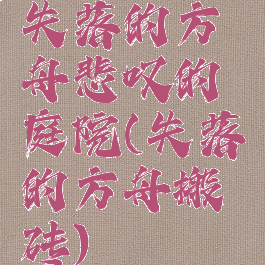 失落的方
舟悲叹的
庭院(失落
的方舟搬
砖)